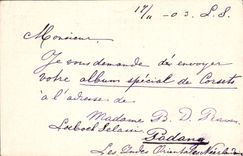 17/11 - 03. L.S.
Monsieur,
Je vous demande de envoyer
votre album spécial de Corsets
à l'adresse de
Madame B. D.
Padang
Les Indes Orientales